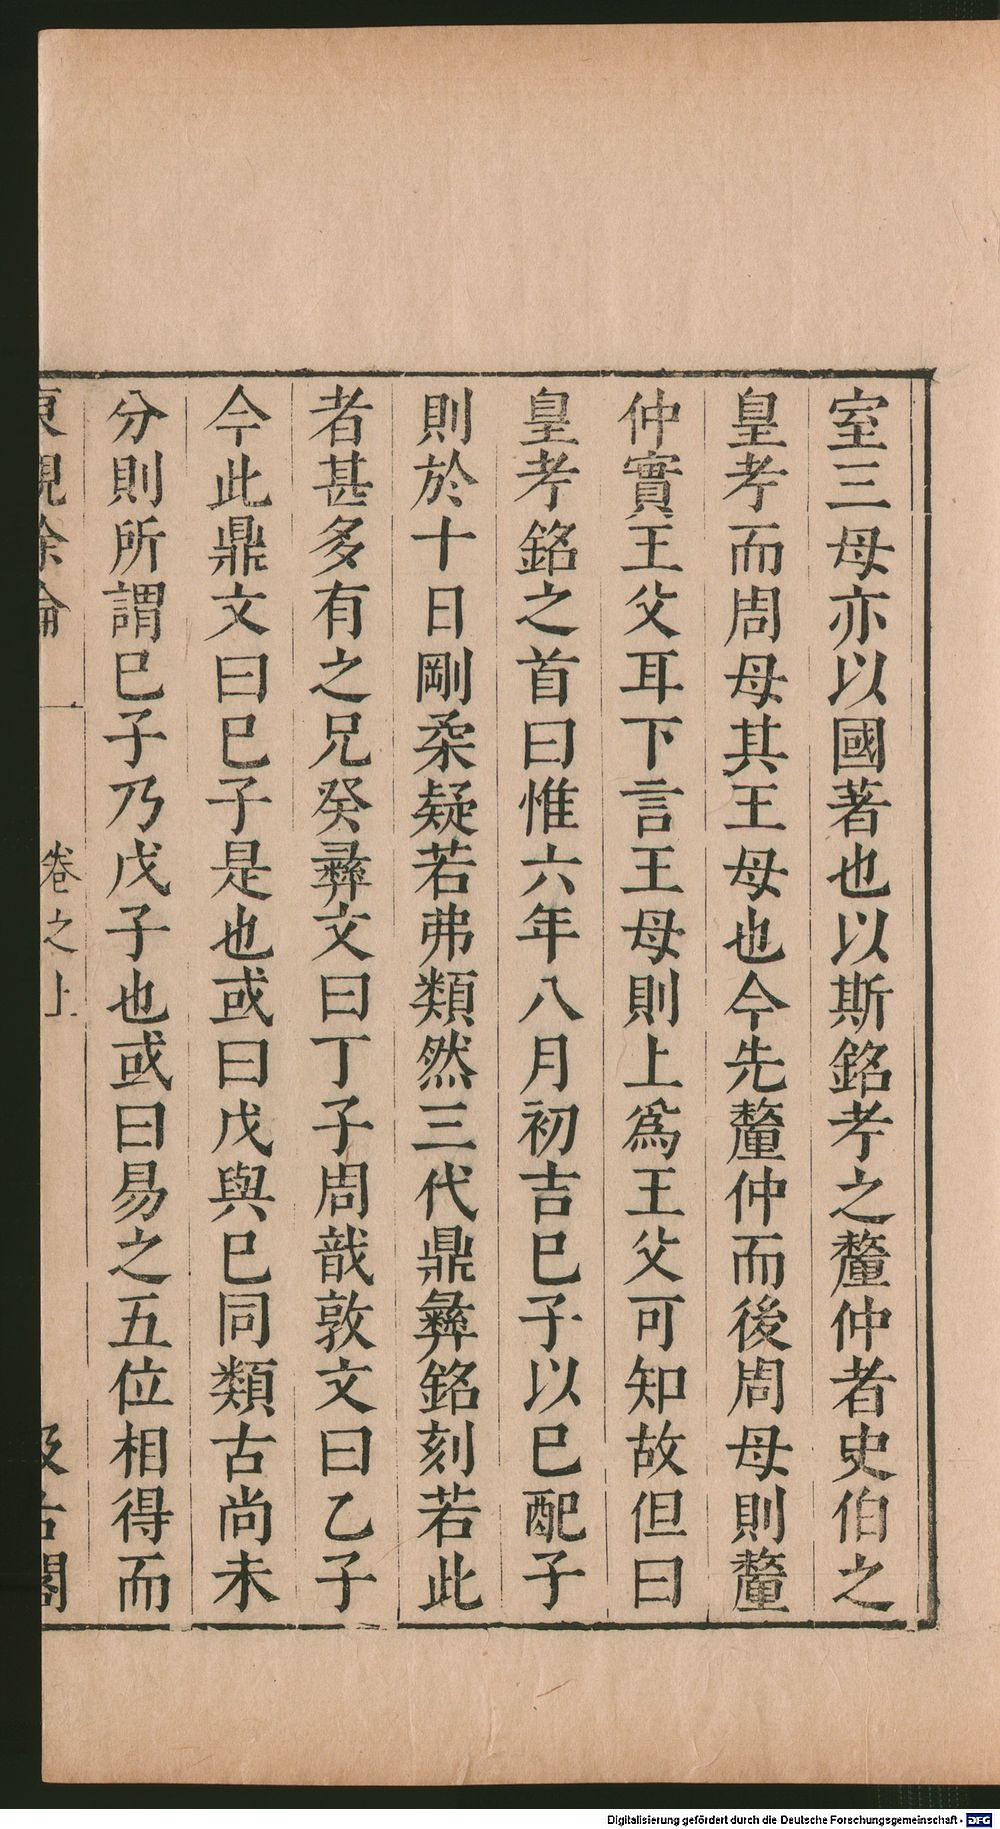 室三母亦以國著也以斯銘考之釐仲者史伯之
皇考而周母其王母也今先釐仲而後周母則釐
仲實王父耳下言王母則上爲王父可知故但曰
皇考銘之首曰惟六年八月初吉巳子以巳配子
則於十日剛柔疑若弗類然三代鼎彝銘刻若此
者甚多有之兄癸彝文曰丁子周敔敦文曰乙子
今此鼎文曰巳子是也或曰戊與巳同類古尚未
分則所謂巳子乃戊子也或曰易之五位相得而
東觀餘論 一 卷之上 汲古閣
Digitalisierung gefördert durch die Deutsche Forschungsgemeinschaft - DFG